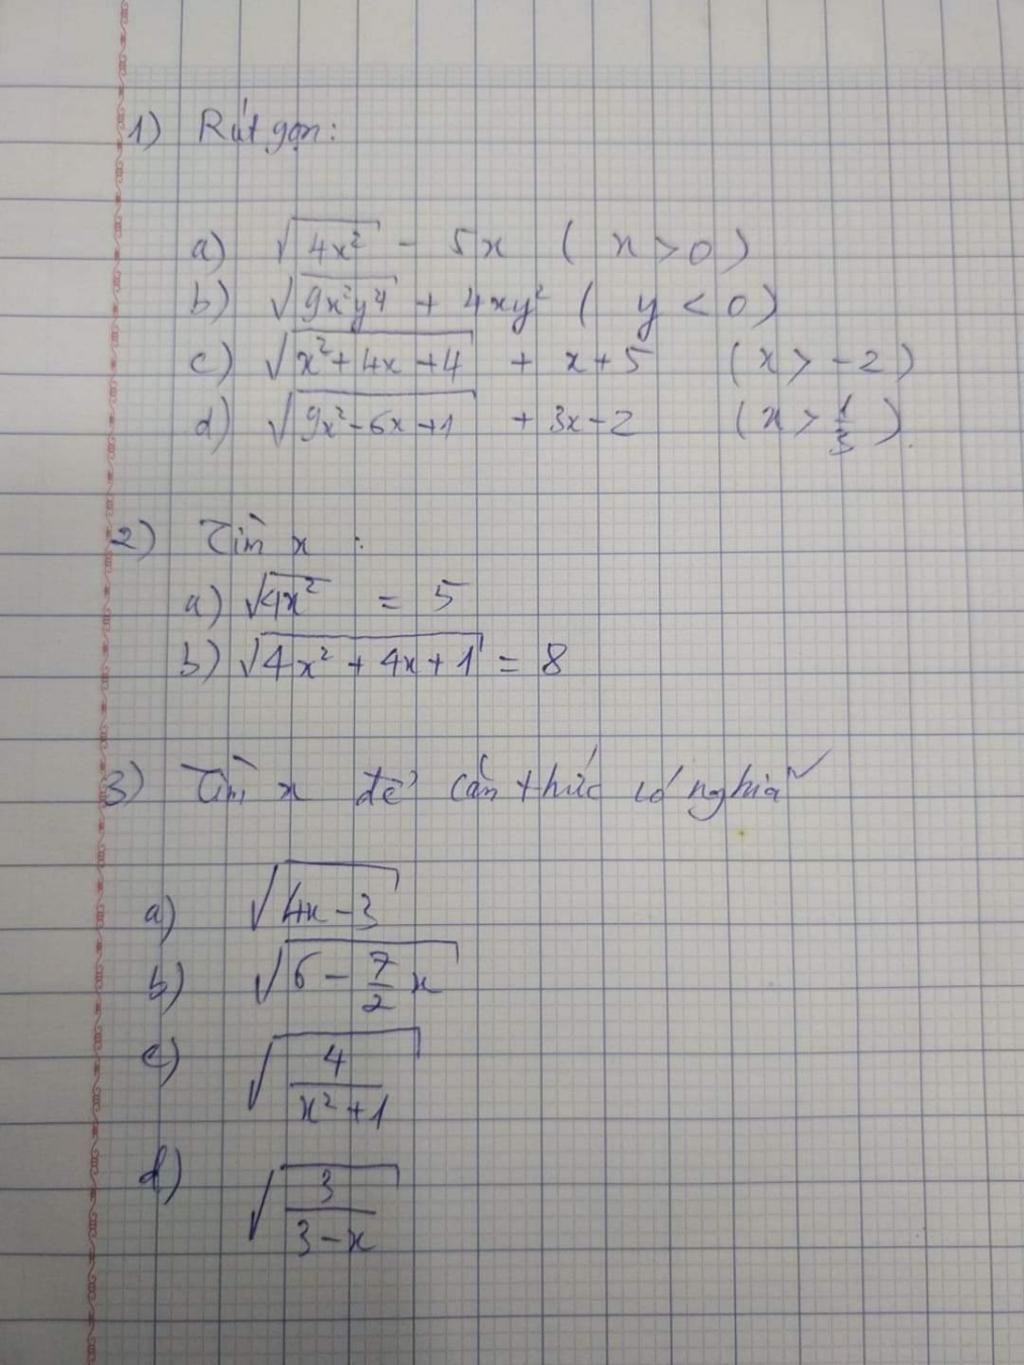 1) Rút gọn:
a) √(4x²) - 5x ( x > 0 )
b) √(9x²y⁴) + 4xy² ( y < 0 )
c) √(x² + 4x + 4) + x + 5 ( x > -2 )
d) √(9x² - 6x + 1) + 3x - 2 ( x > 1/3 ).
2) Tìm x :
a) √(4x²) = 5
b) √(4x² + 4x + 1) = 8
3) Tìm x để căn thức có nghĩa
a) √(4x - 3)
b) √(6 - 7/2 x)
c) √(4/(x² + 1))
d) √(3/(3 - x))